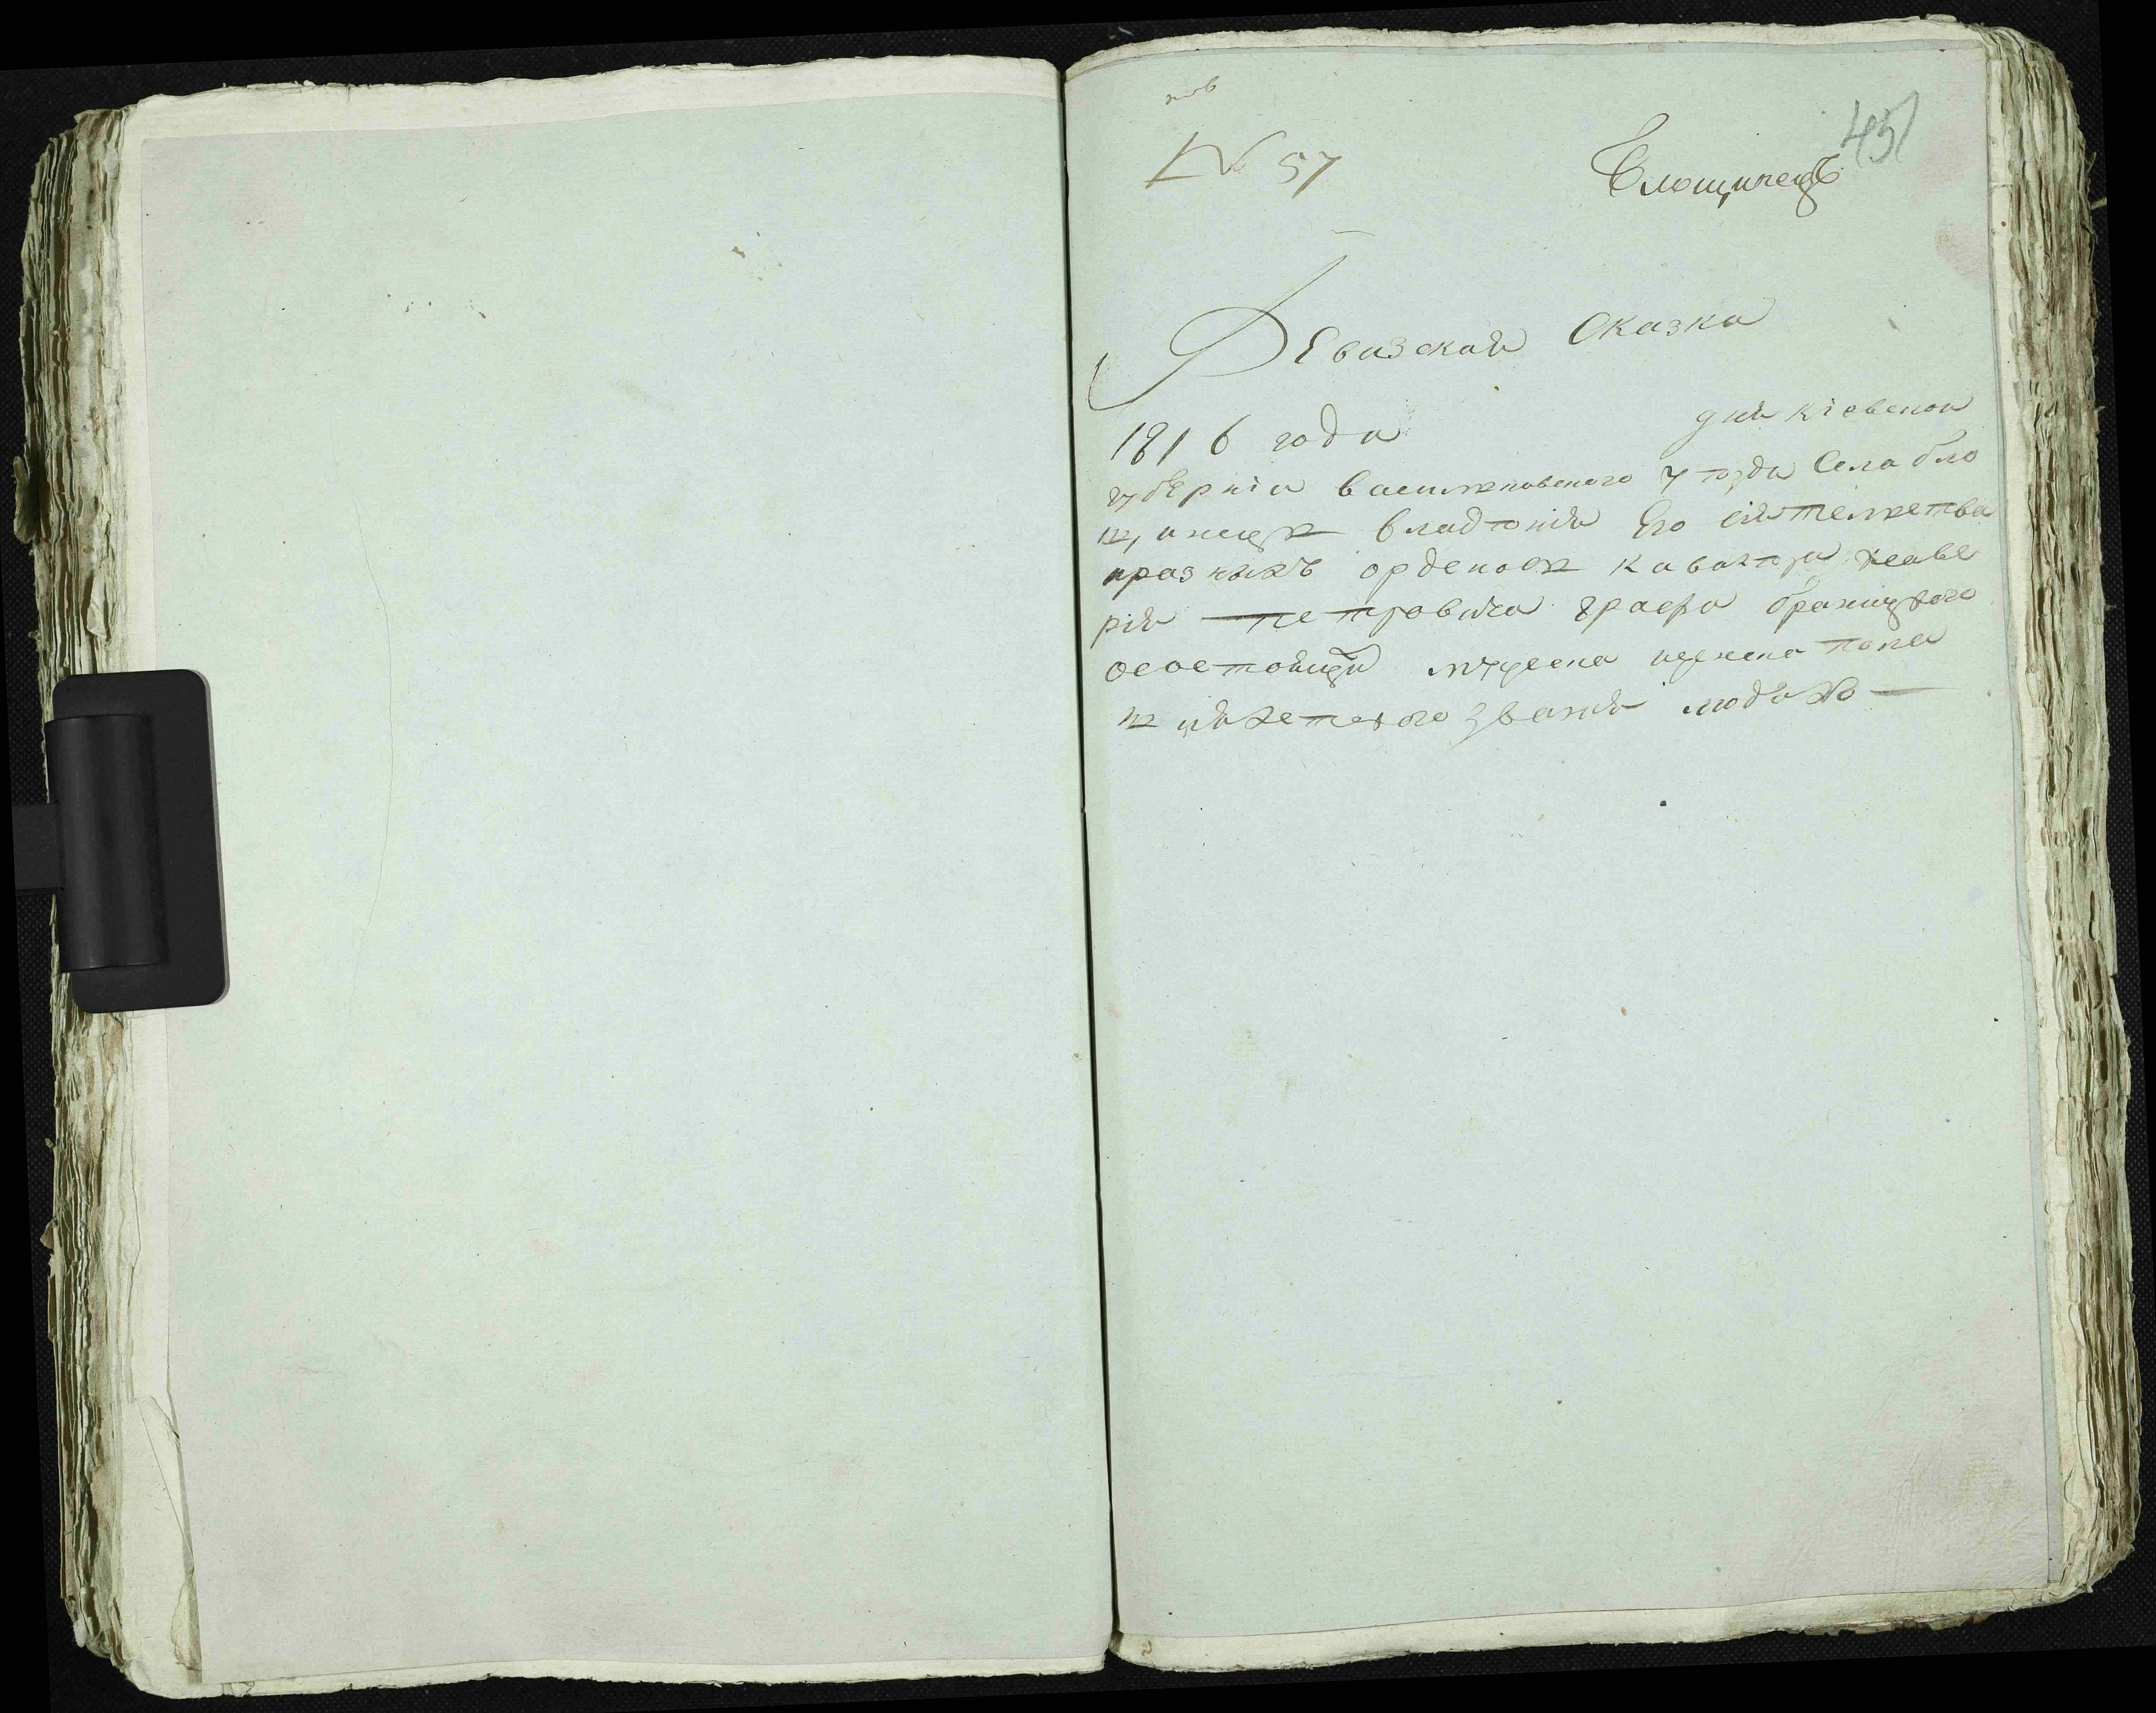 № 57
451
Блощинецъ
Ревизская Сказка
1816 года дня кіевской
губерніи василковского уѣзда Села бло
щинецъ владѣнія Его сіятелства
иразныхъ орденовъ кавалѣра ксаве
рія петровича графа браницкого
осостоящи мужеска иженска пола
крѣстянского званія людяхъ